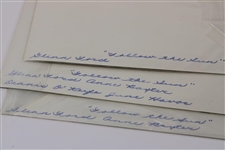 Glenn Ford "Follow the Sun"
"Follow the Sun"
Glenn Ford Anne Baxter
Dennis O'Keefe June Havoc
"Follow the Sun"
Glenn Ford Anne Baxter